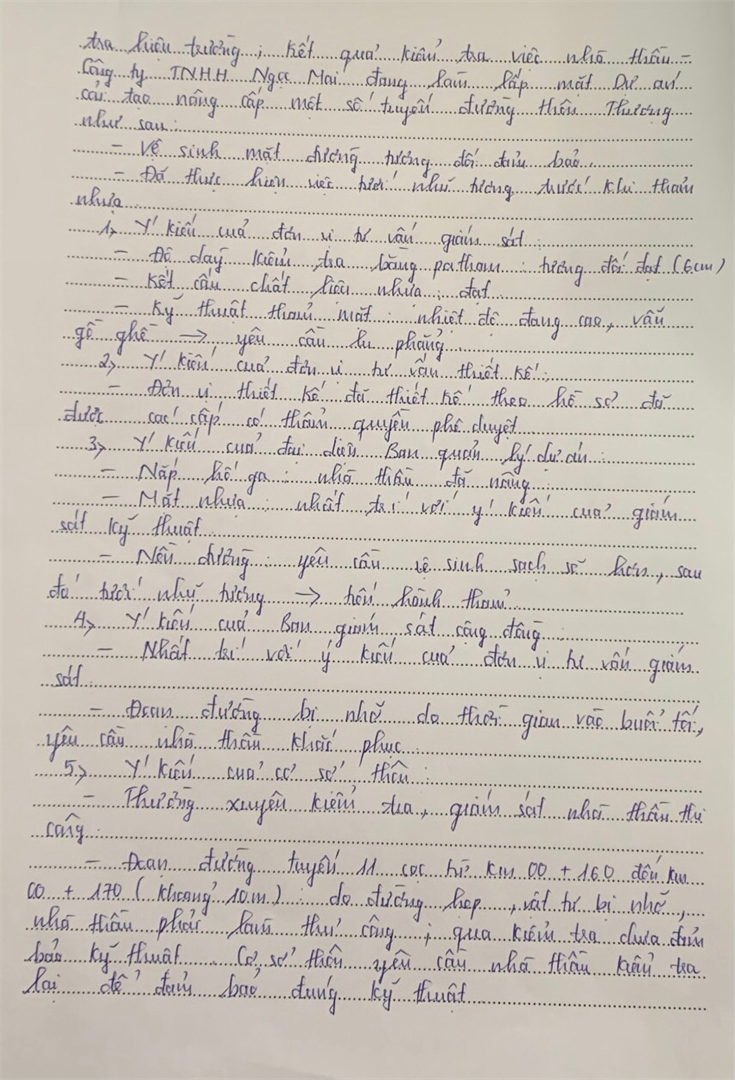 tra hiện trường; kết quả kiểm tra việc nhà thầu -
Công ty TNHH Ngọc Mai đang làm lấp mặt Dự án
cải tạo nâng cấp một số tuyến đường thôn Thượng
như sau:
- Vệ sinh mặt đường tương đối đảm bảo.
- Đã thực hiện việc tưới nhũ tương trước khi thảm
nhựa.
1, Ý kiến của đơn vị tư vấn giám sát:
- Độ dày kiểm tra bằng patham: tương đối đạt (6cm)
- Kết cấu chất liệu nhựa: đạt
- Kỹ thuật thảm mặt: nhiệt độ đang cao, vẫn
gồ ghề → yêu cầu lu phẳng.
2, Ý kiến của đơn vị tư vấn thiết kế:
- Đơn vị thiết kế đã thiết kế theo hồ sơ đã
được các cấp có thẩm quyền phê duyệt.
3, Ý kiến của đại diện Ban quản lý dự án:
- Nắp hố ga: nhà thầu đã nâng.
- Mặt nhựa: nhất trí với ý kiến của giám
sát kỹ thuật.
- Nền đường: yêu cầu vệ sinh sạch sẽ hơn, sau
đó tưới nhũ tương → tiến hành thảm.
4, Ý kiến của Ban giám sát cộng đồng:
- Nhất trí với ý kiến của đơn vị tư vấn giám
sát.
- Đoạn đường bị nhỡ do thời gian vào buổi tối,
yêu cầu nhà thầu khắc phục.
5, Ý kiến của cơ sở thôn:
- Thường xuyên kiểm tra, giám sát nhà thầu thi
công.
- Đoạn đường tuyến 11 cọc từ Km 00 + 160 đến km
00 + 170 (khoảng 10m): do đường hẹp, vật tư bị nhỡ,
nhà thầu phải làm thủ công; qua kiểm tra chưa đảm
bảo kỹ thuật. Cơ sở thôn yêu cầu nhà thầu kiểm tra
lại để đảm bảo đúng kỹ thuật